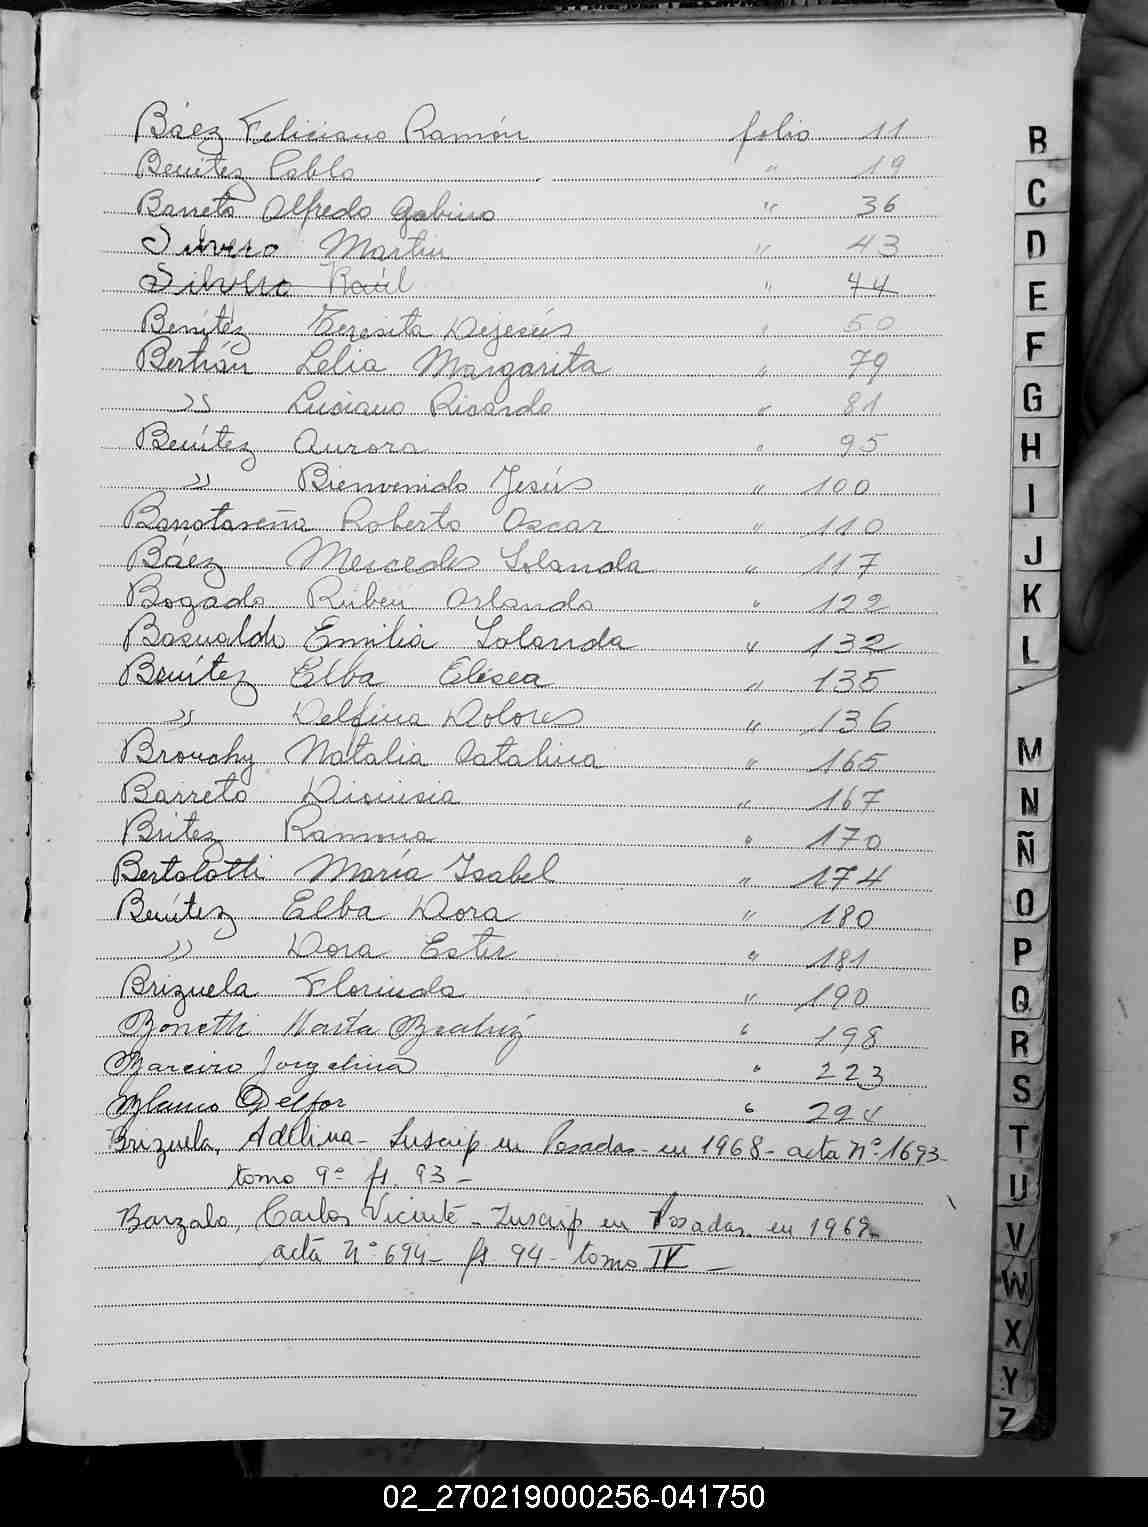 Báez Feliciano Ramón folio 11
Benítez Pablo " 19
Barreto Alfredo Gabino " 36
Silvero Martin " 43
Silvero Raúl " 44
Benítez Teresita Dejesús " 50
Bertrán Lelia Margarita " 79
" Luciano Ricardo " 81
Benítez Aurora " 95
" Bienvenido Jesús " 100
Roberto Oscar " 110
Báez Mercedes Iolanda " 117
Bogado Rubén Orlando " 122
Basualdo Emilia Iolanda " 132
Benítez Elba Elisea " 135
" Delfina Dolores " 136
Brouchy Natalia Catalina " 165
Barreto Dionisia " 167
Britez Ramona " 170
Bertolotti María Isabel " 174
Benítez Elba Dora " 180
" Dora Ester " 181
Brizuela Florinda " 190
Bonetti Marta Beatriz " 198
Jorgelina " 223
Delfor " 294
Brizuela, Adelina - Inscrip en Posadas - en 1968 - acta Nº 1693 -
tomo 9º fs. 93 -
Barzalo, Carlos Vicente - Inscrip en Posadas en 1969
acta Nº 694 - fs 94 - tomo IV -
B
C
D
E
F
G
H
I
J
K
L
M
N
Ñ
O
P
Q
R
S
T
U
V
W
X
Y
Z
02_270219000256-041750